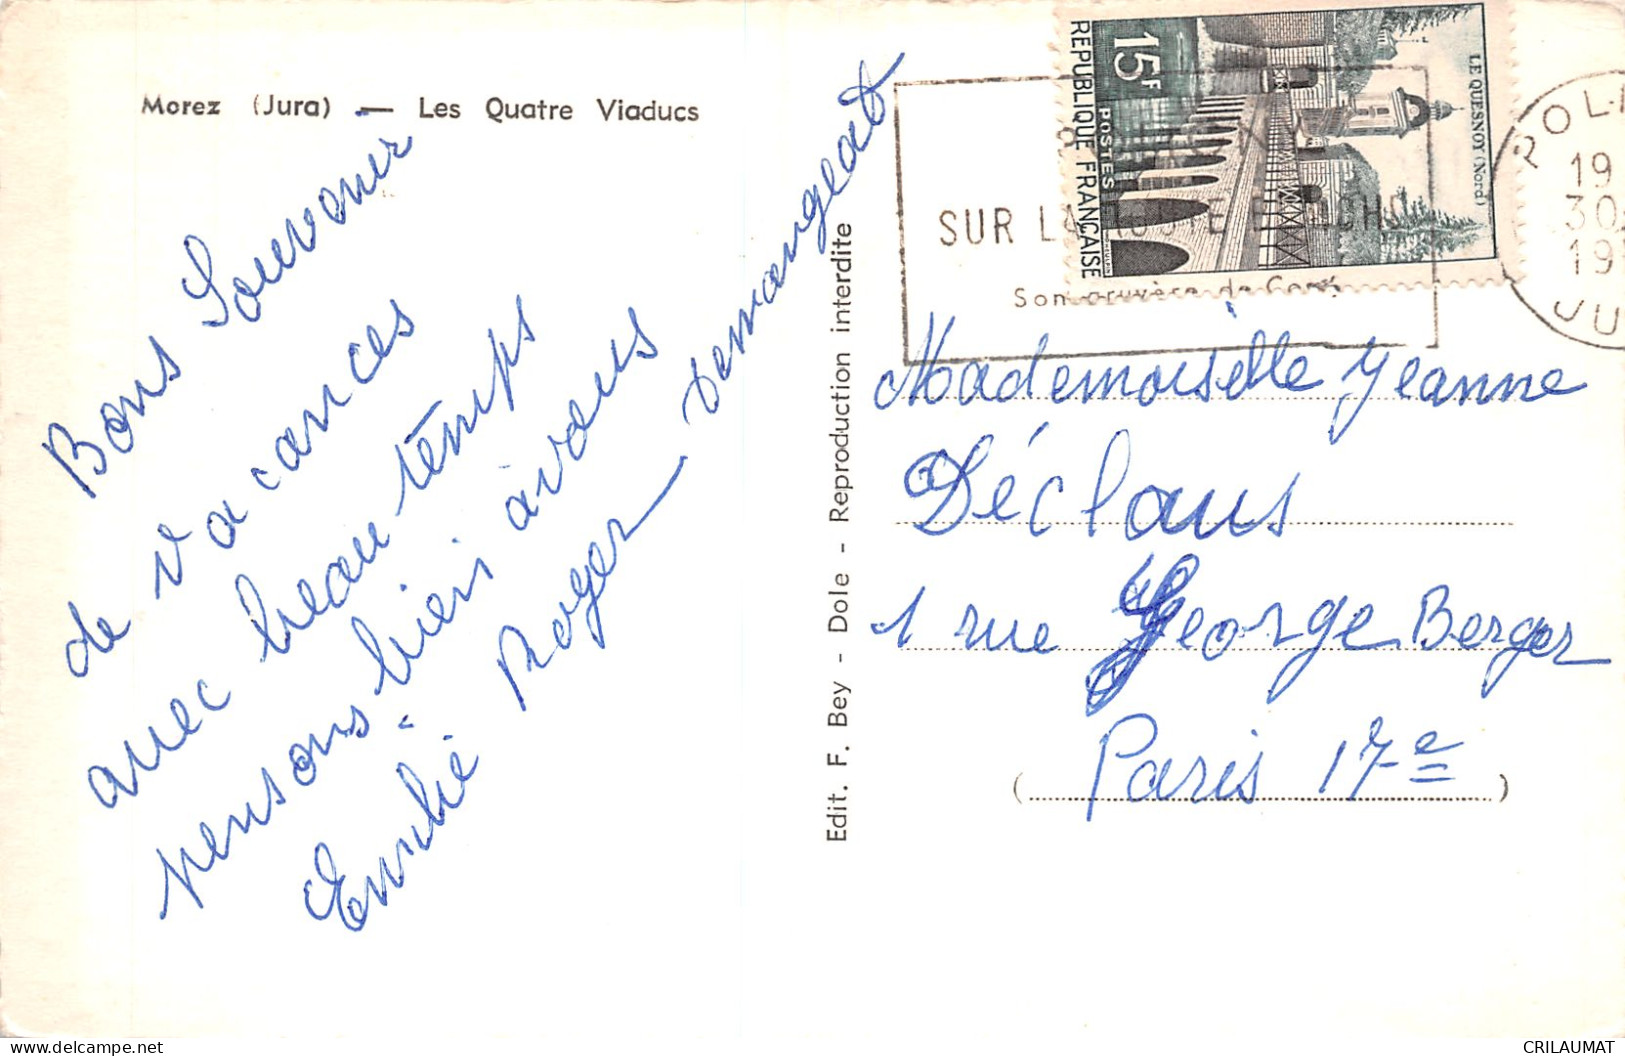 Morez (Jura) — Les Quatre Viaducs
Bons Souvenir
de vacances
avec beau temps
pensons bien à vous
Roger Demangeat
Edit. F. Bey - Dole - Reproduction interdite
15F
POSTES
REPUBLIQUE FRANÇAISE
LE QUESNOY (Nord)
SUR LA ROUTE
Son gruyère de Comté
POLI
19
30
19
JU
Mademoiselle Jeanne
Déclaus
1 rue George Berger
(Paris 17e)
delcampe.net
CRILAUMAT